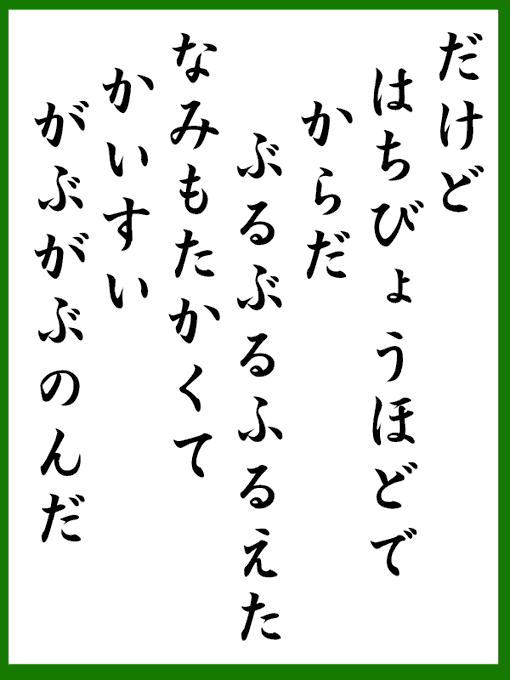 だけど
はちびょうほどで
からだ
ぶるぶるふるえた
なみもたかくて
かいすい
がぶがぶのんだ